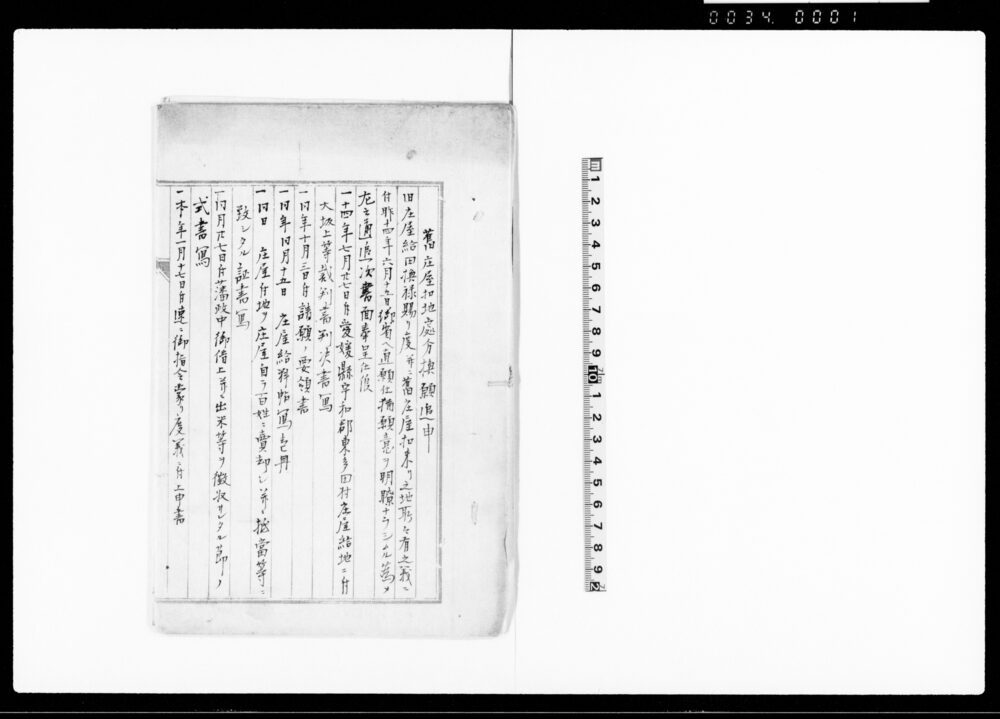 0034.0001
舊庄屋扣地處分換願追申
旧庄屋給田換禄賜り度并ニ舊庄屋扣来リ之地所ニ有之義ニ
付昨十四年六月十五日御省ヘ直願仕揃願意ヲ明瞭ナラシムル為メ
左之通追次書面奉呈仕候
一十四年七月廿七日付愛媛縣宇和郡東多田村庄屋給地ニ付
大坂上等裁判書判决書寫
一同年十月三日付請願ノ要領書
一同年同月十五日 庄屋給料帖寫壱冊
一同日 庄屋付地ヲ庄屋自ラ百姓ニ賣却シ并ニ抵當等ニ
致シタル証書寫
一同月廿七日付藩政中御借上并ニ出米等ヲ徴収サレタル節ノ
式書寫
一本年一月十七日付速ニ御指令蒙リ度義ニ付上申書
m 1 2 3 4 5 6 7 8 9 10 1 2 3 4 5 6 7 8 9 2